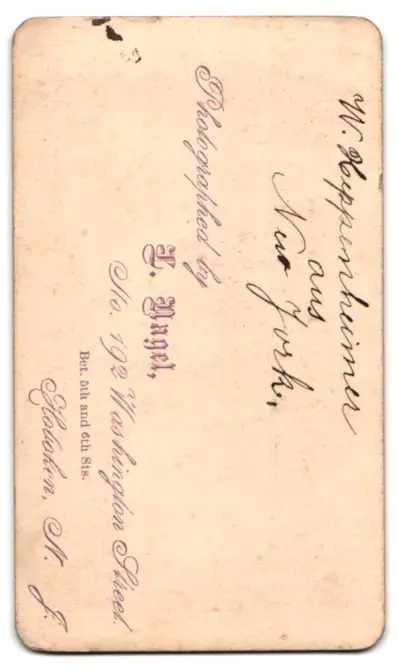 W. Heppenheimer
aus
New York.
Photographed by
L. Nagel,
No. 192 Washington Street.
Bet. 5th and 6th Sts.
Hoboken, N. J.